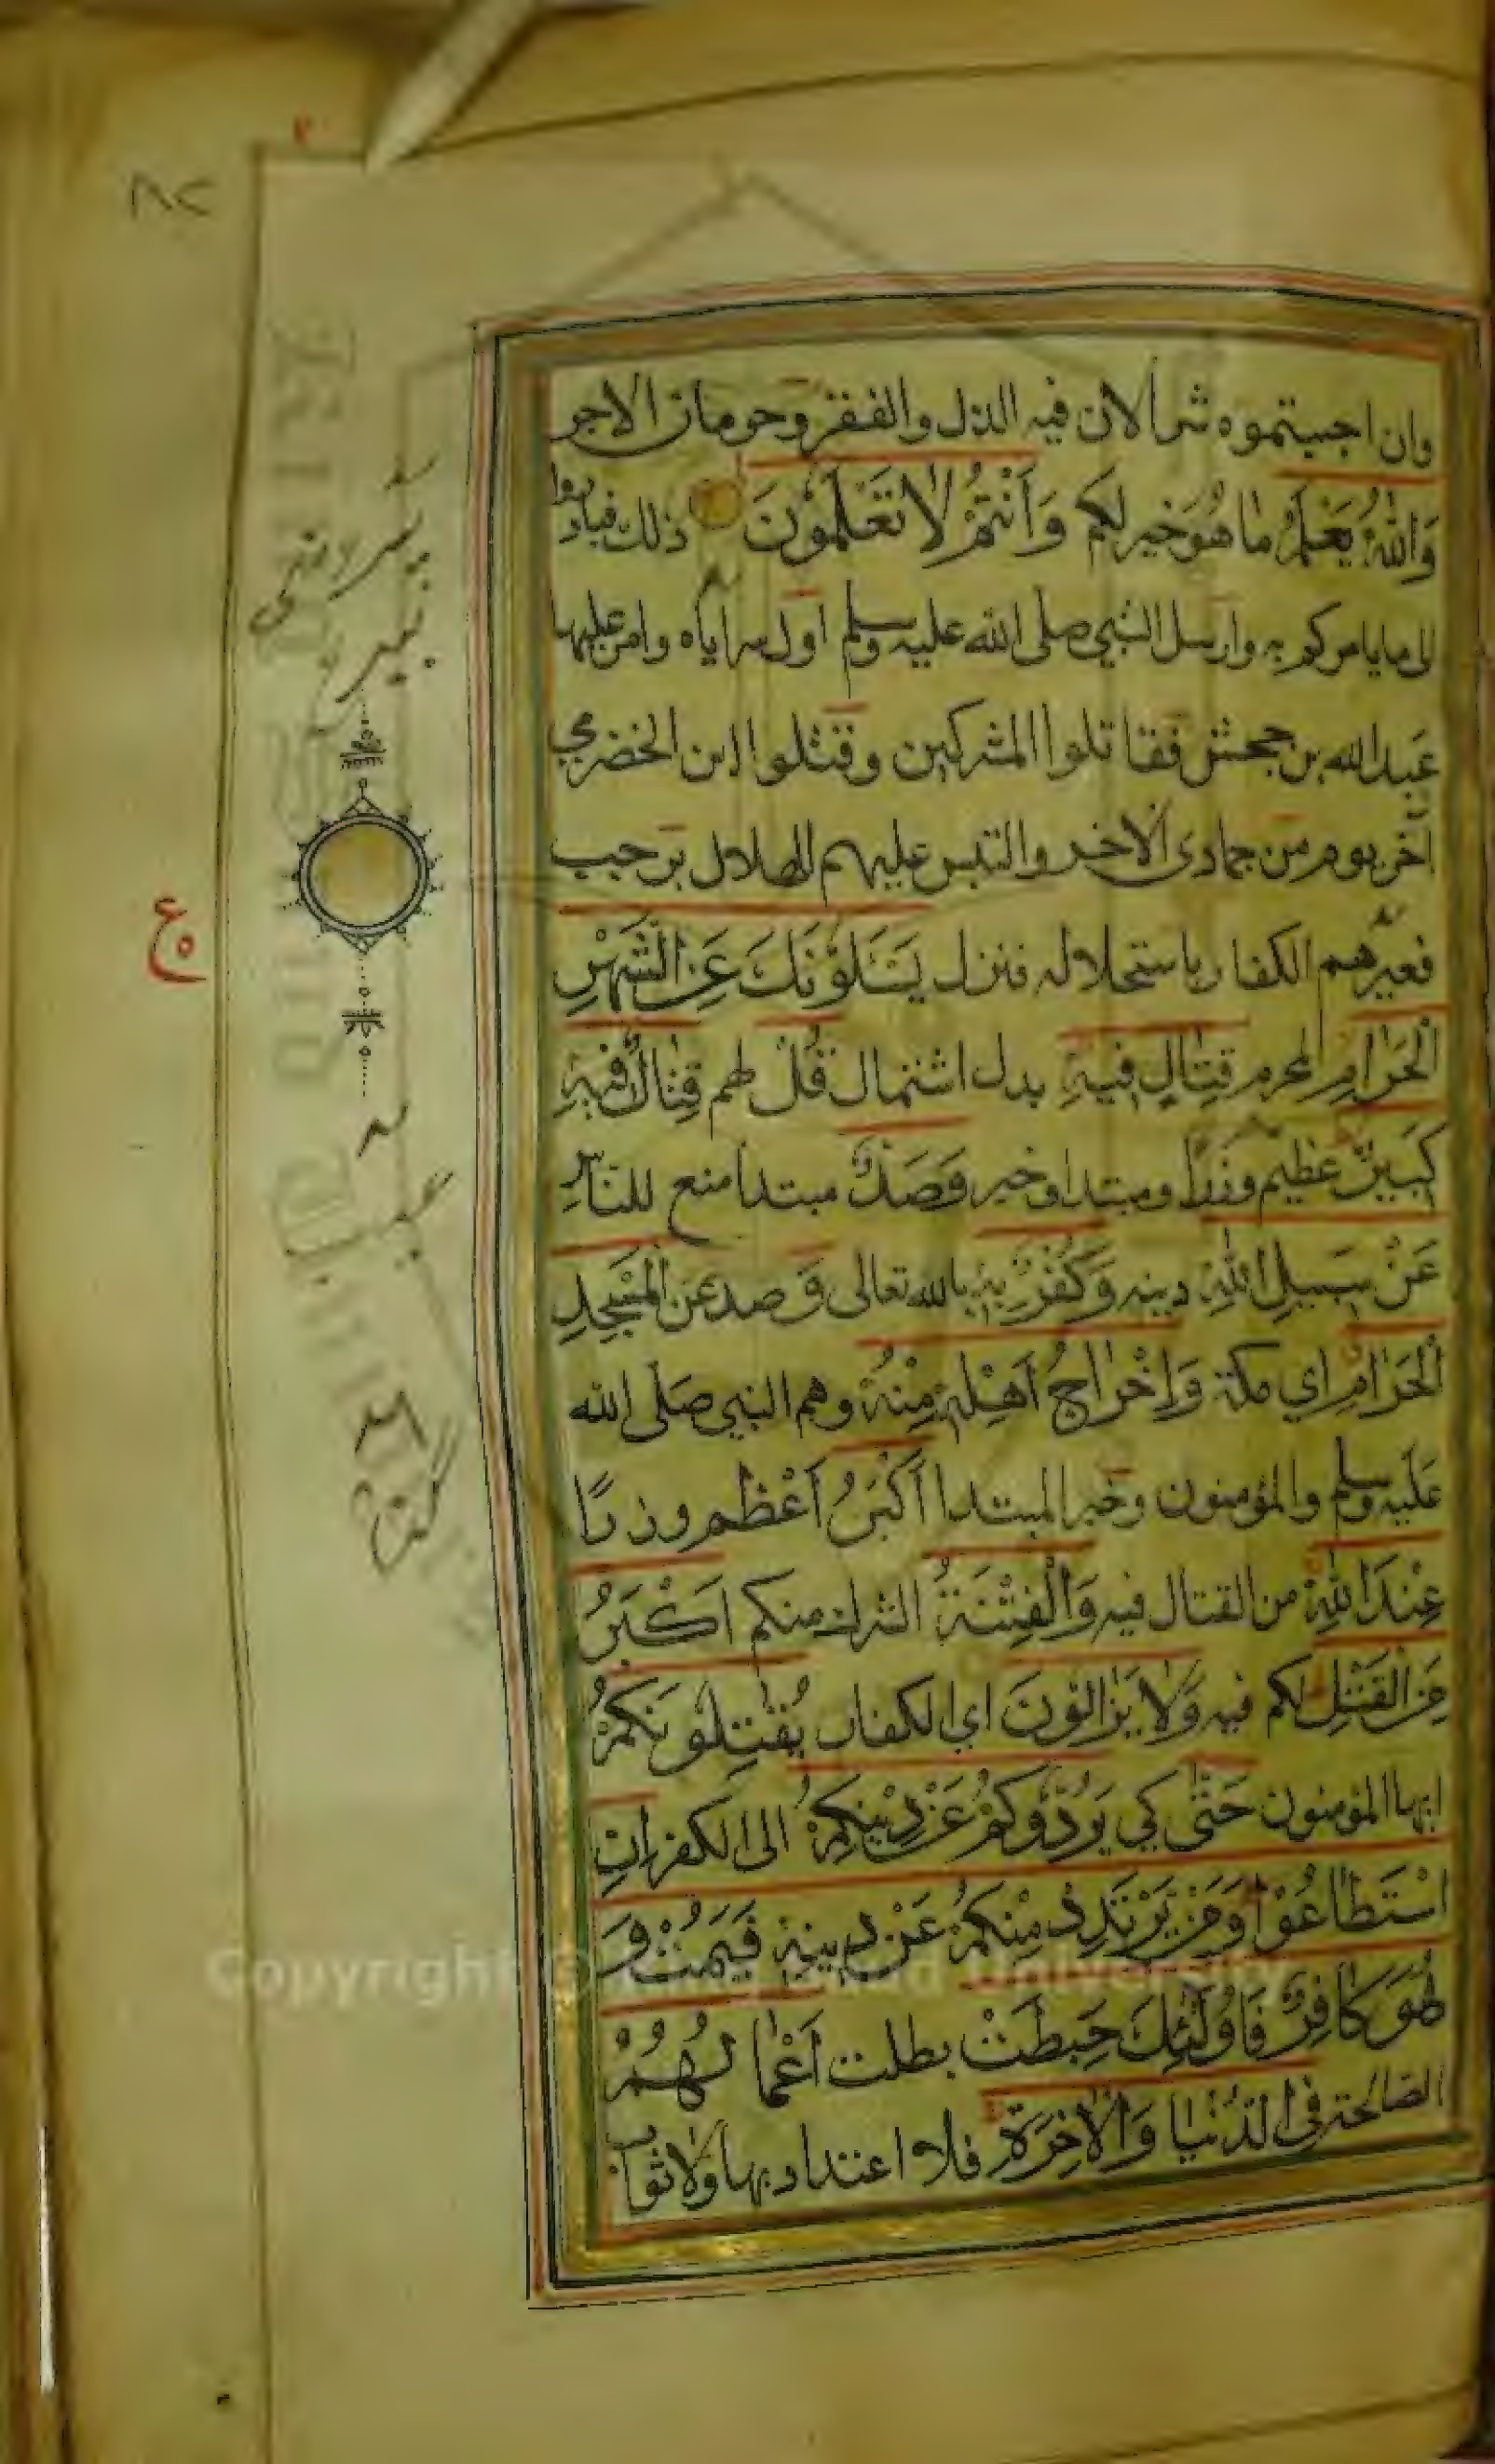 وان اجبتموه شرا لان فيه الذل والفقر وحرمان الاجر
وَاللّٰهُ يَعْلَمُ ما هُوَ خير لكم وَاَنْتُمْ لا تَعْلَمُونَ ذلك فبادروا
الى ما يامركم به وارسل النبي صلى الله عليه وسلم اول سراياه وامر عليها
عبد الله بن جحش فقاتلوا المشركين وقتلوا ابن الحضرمي
آخر يوم من جمادى الاخر والتبس عليهم الهلال برجب
فعيرهم الكفار باستحلاله فنزل يَسْئَلُوْنَكَ عَنِ الشَّهْرِ
الْحَرَامِ المحرم قِتَالٍ فِيهِ بدل اشتمال قُلْ لهم قِتَالٌ فِيهِ
كَبِيرٌ عظيم وزرا ومبتدا وخبر وَصَدٌّ مبتدا منع للناس
عَنْ سَبِيلِ اللّٰهِ دينه وَكُفْرٌ بِهِ بالله تعالى وَ صد عن المَسْجِدِ
الْحَرَامِ اي مكة وَاِخْرَاجُ اَهْلِهِ مِنْهُ وهم النبي صلى الله
عليه وسلم والمؤمنون وخبر المبتدا اَكْبَرُ اعظم وزرًا
عِنْدَ اللّٰهِ من القتال فيه وَالْفِتْنَةُ الشرك منكم اَكْبَرُ
مِنَ الْقَتْلِ لكم فيه وَلا يَزَالُونَ اي الكفار يُقَاتِلُوْنَكُمْ
ايها المؤمنون حَتّٰى كي يَرُدُّوْكُمْ عَنْ دِينِكُمْ الى الكفر اِنِ
اسْتَطَاعُوْا وَمَنْ يَرْتَدِدْ مِنْكُمْ عَنْ دِينِهِ فَيَمُتْ وَ
هُوَ كَافِرٌ فَاُولٰئِكَ حَبِطَتْ بطلت اَعْمَالُهُمْ
الصالحة فِى الدُّنْيَا وَالْاٰخِرَةِ فلا اعتداد بها ولا ثواب
ع
Copyright © King Saud University